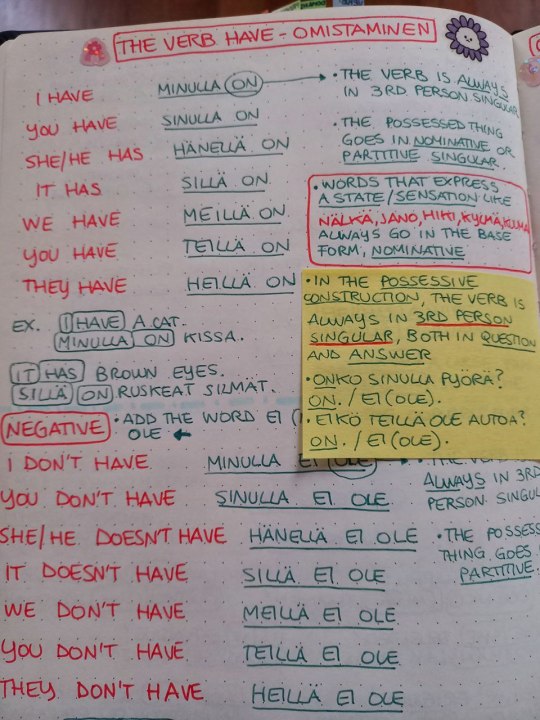 THE VERB HAVE - OMISTAMINEN
I HAVE MINULLA ON
YOU HAVE SINULLA ON
SHE/HE HAS HÄNELLÄ ON
IT HAS SILLÄ ON
WE HAVE MEILLÄ ON
YOU HAVE TEILLÄ ON
THEY HAVE HEILLÄ ON
• THE VERB IS ALWAYS
IN 3RD PERSON SINGULAR
• THE POSSESSED THING
GOES IN NOMINATIVE OR
PARTITIVE SINGULAR.
• WORDS THAT EXPRESS
A STATE/SENSATION LIKE
NÄLKÄ, JANO, HIKI, KYLMÄ, KUUMA
ALWAYS GO IN THE BASE
FORM, NOMINATIVE
EX. I HAVE A CAT.
MINULLA ON KISSA.
IT HAS BROWN EYES.
SILLÄ ON RUSKEAT SILMÄT.
• IN THE POSSESSIVE
CONSTRUCTION, THE VERB IS
ALWAYS IN 3RD PERSON
SINGULAR, BOTH IN QUESTION
AND ANSWER
• ONKO SINULLA PYÖRÄ?
ON. / EI (OLE).
• EIKÖ TEILLÄ OLE AUTOA?
ON. / EI (OLE).
NEGATIVE • ADD THE WORD EI
OLE ←
I DON'T HAVE MINULLA EI OLE
YOU DON'T HAVE SINULLA EI OLE
SHE/HE DOESN'T HAVE HÄNELLÄ EI OLE
IT DOESN'T HAVE SILLÄ EI OLE
WE DON'T HAVE MEILLÄ EI OLE
YOU DON'T HAVE TEILLÄ EI OLE
THEY DON'T HAVE HEILLÄ EI OLE
• THE VERB
ALWAYS IN 3RD
PERSON SINGUL
• THE POSSESS
THING GOES
PARTITIVE.